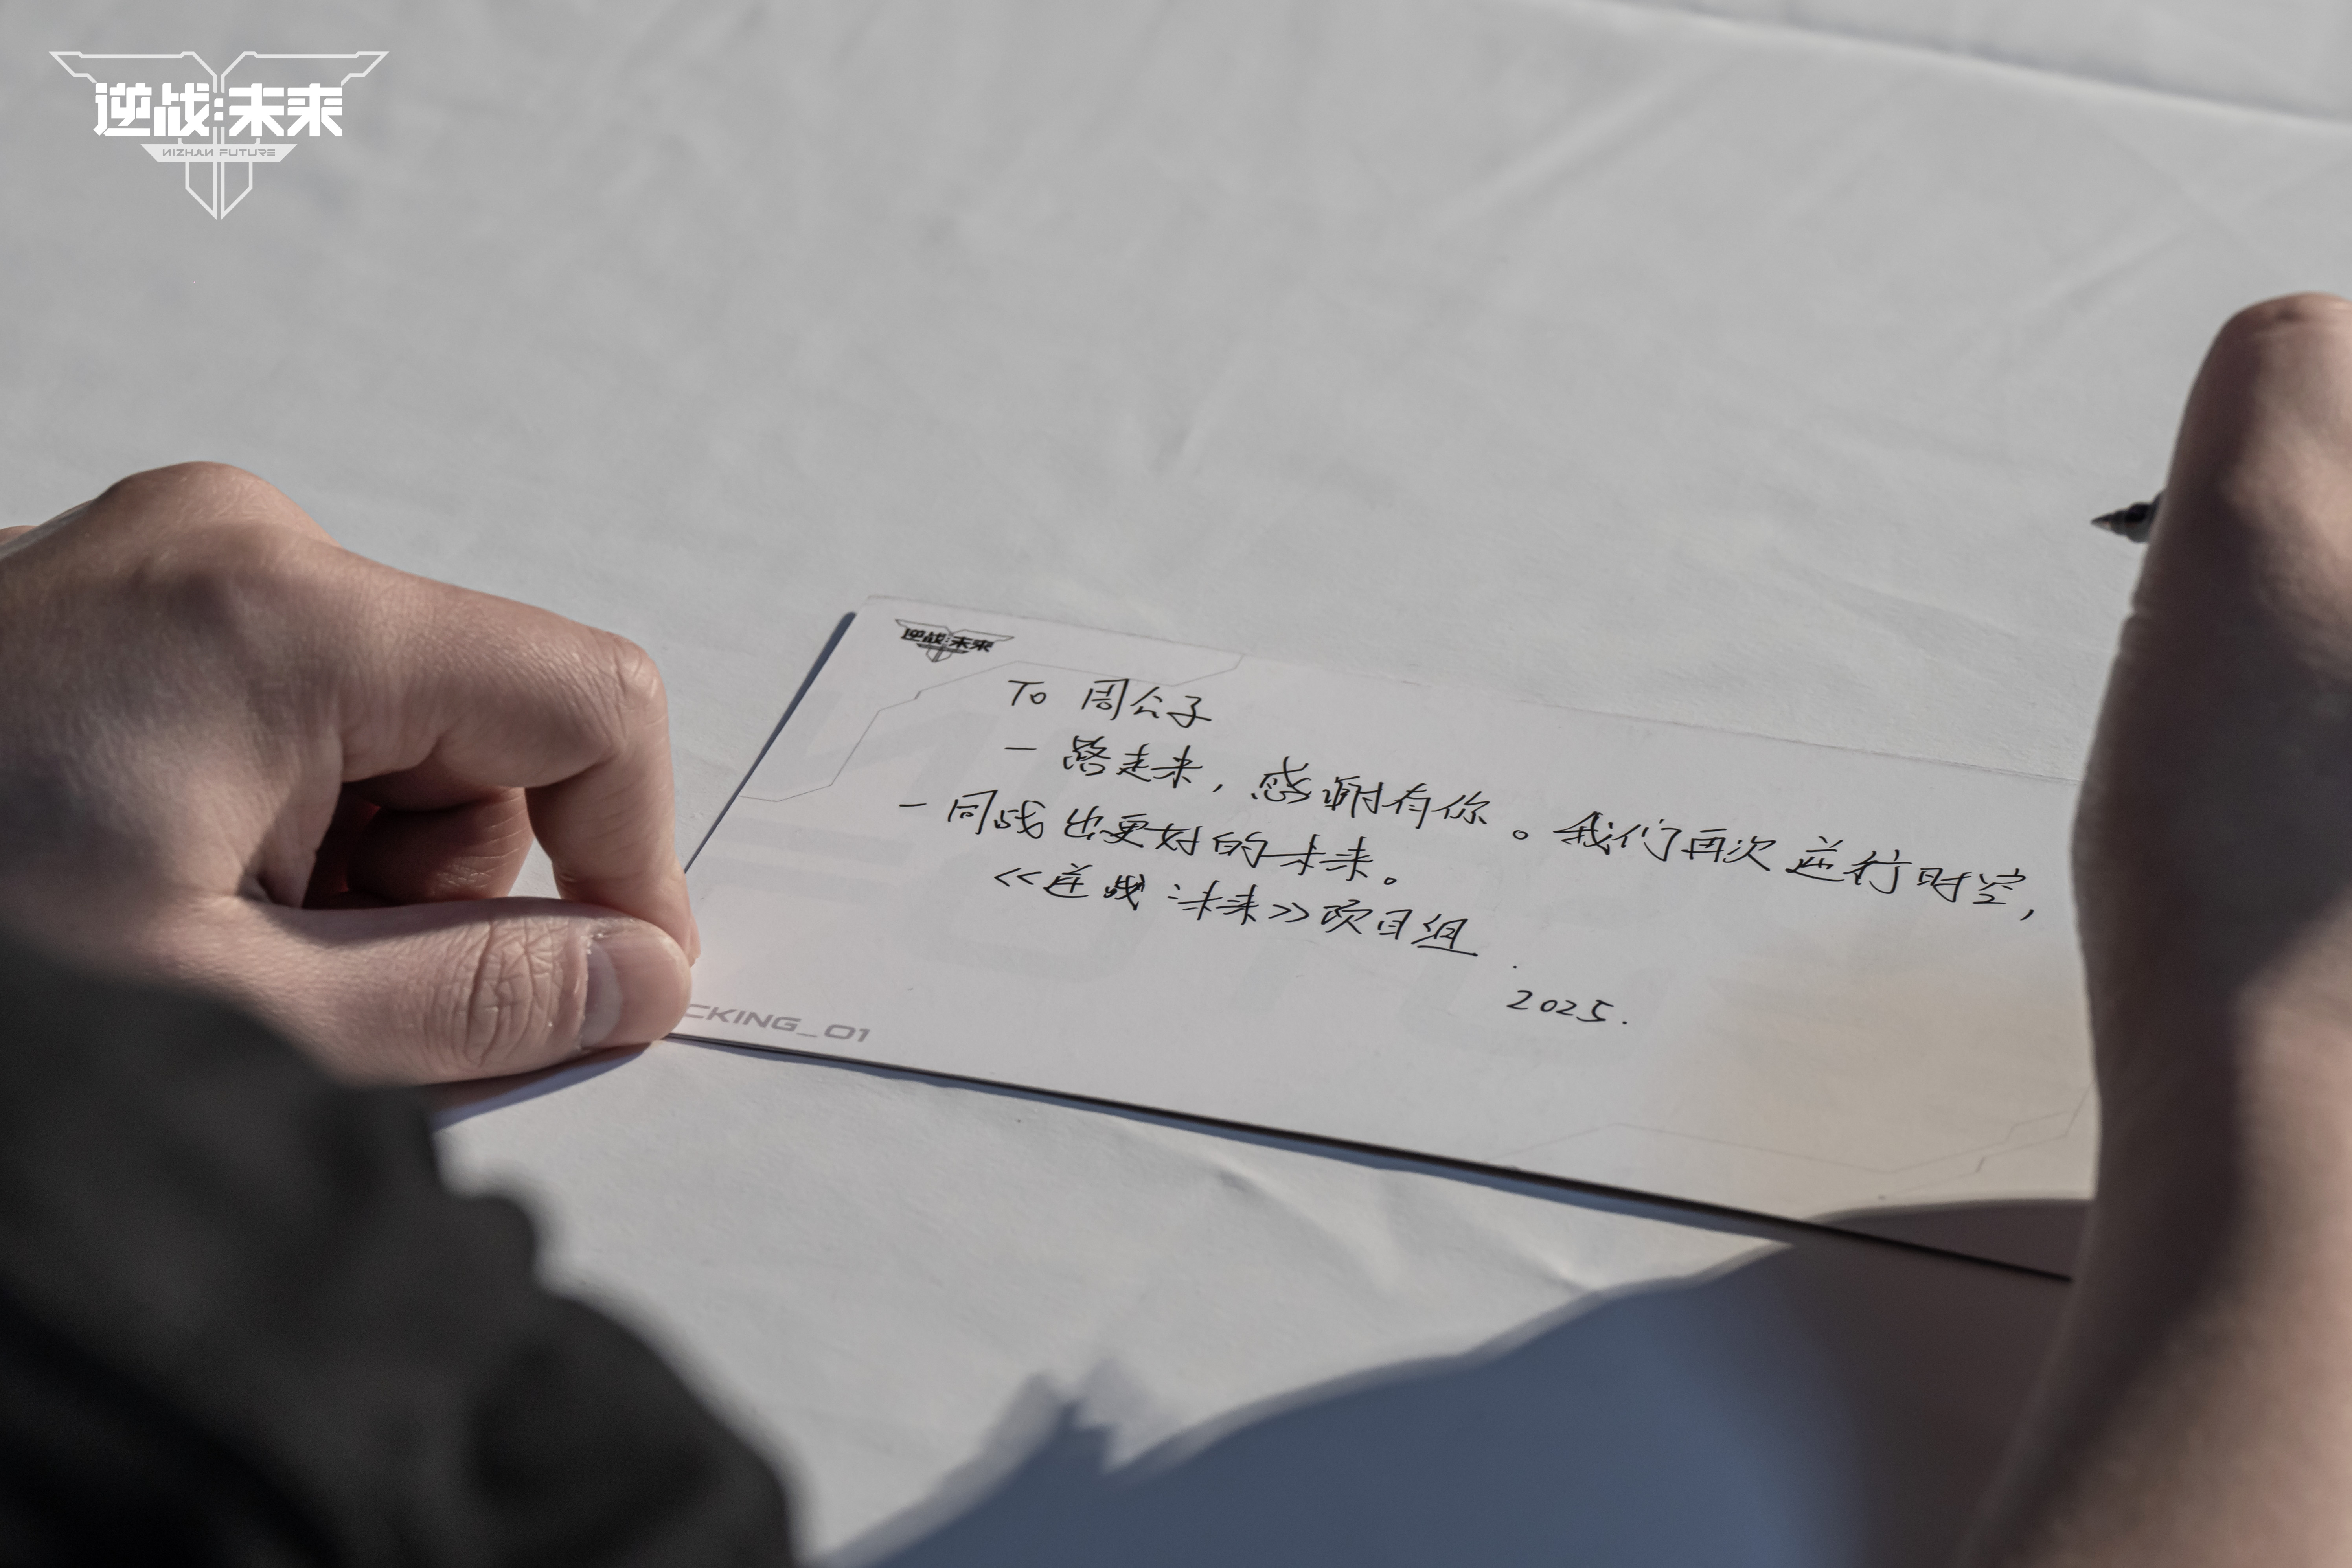 逆战:未来
NIZHAN FUTURE
逆战:未来
To 周公子
一路走来，感谢有你。我们再次逆行时空，
一同战出更好的未来。
《逆战:未来》项目组.
2025.
CKING_01